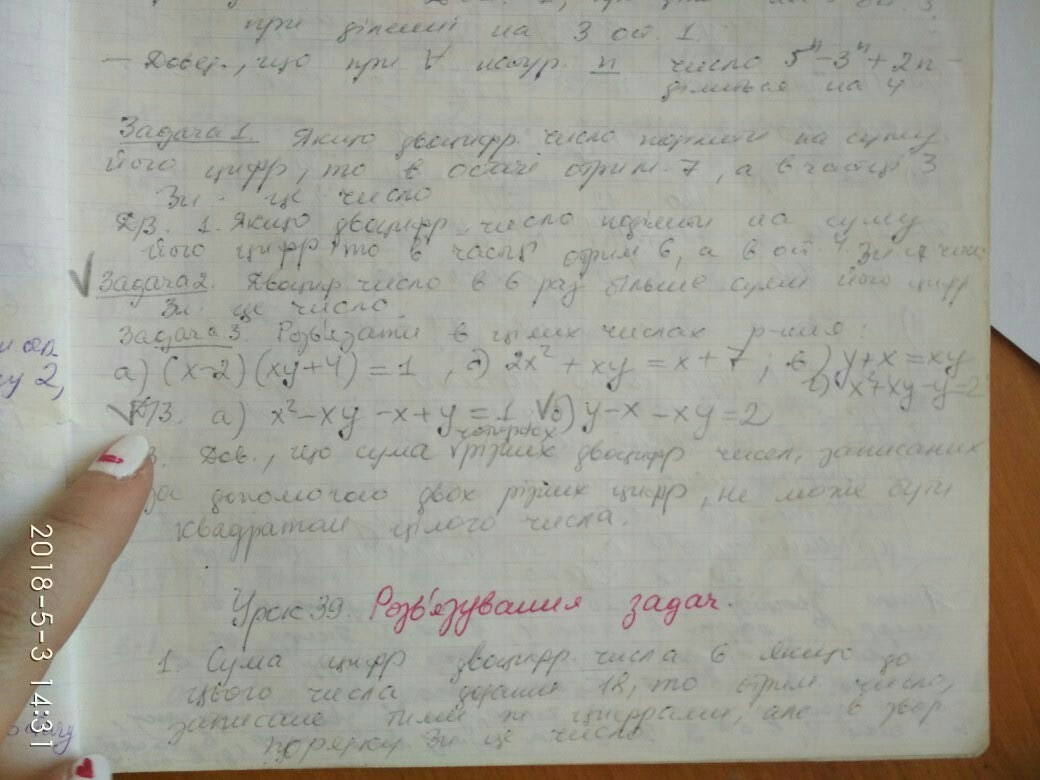 при діленні на 3 ост. 1.
— Довед., що при ∀ натур. n число 5ⁿ-3ⁿ+2n -
ділиться на 4
Задача 1. Якщо двоцифр. число поділити на суму
його цифр, то в остачі отрим. 7, а в частці 3
Зн. це число
Д/З. 1. Якщо двоцифр. число поділити на суму
його цифр то в частці отрим 6, а в ост 4. Зн це число
Задача 2. Двоцифр число в 6 раз більше суми його цифр
Зн. це число.
Задача 3 Розв'язати в цілих числах р-ння:
а) (x-2)(xy+4) = 1, б) 2x² + xy = x + 7; в) y+x = xy
г) x²+xy-y=2
Д/З. а) x²-xy-x+y=1 б) y-x-xy=2
чотирьох
3. Дов., що сума різних двоцифр чисел, записаних
за допомогою двох різних цифр, не може бути
квадратом цілого числа.
Урок 39. Розв'язування задач.
1. Сума цифр двоцифр. числа 6 Якщо до
цього числа додати 18, то отрим число,
записане тими ж цифрами але в звор
порядку Зн це число
2018-5-3 14:31